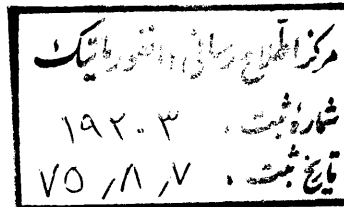 مرکز اطلاع رسانی و انفورماتیک
شمارهٔ ثبت . ۱۹۲۰۳
تاریخ ثبت . ۷۵/۸/۷